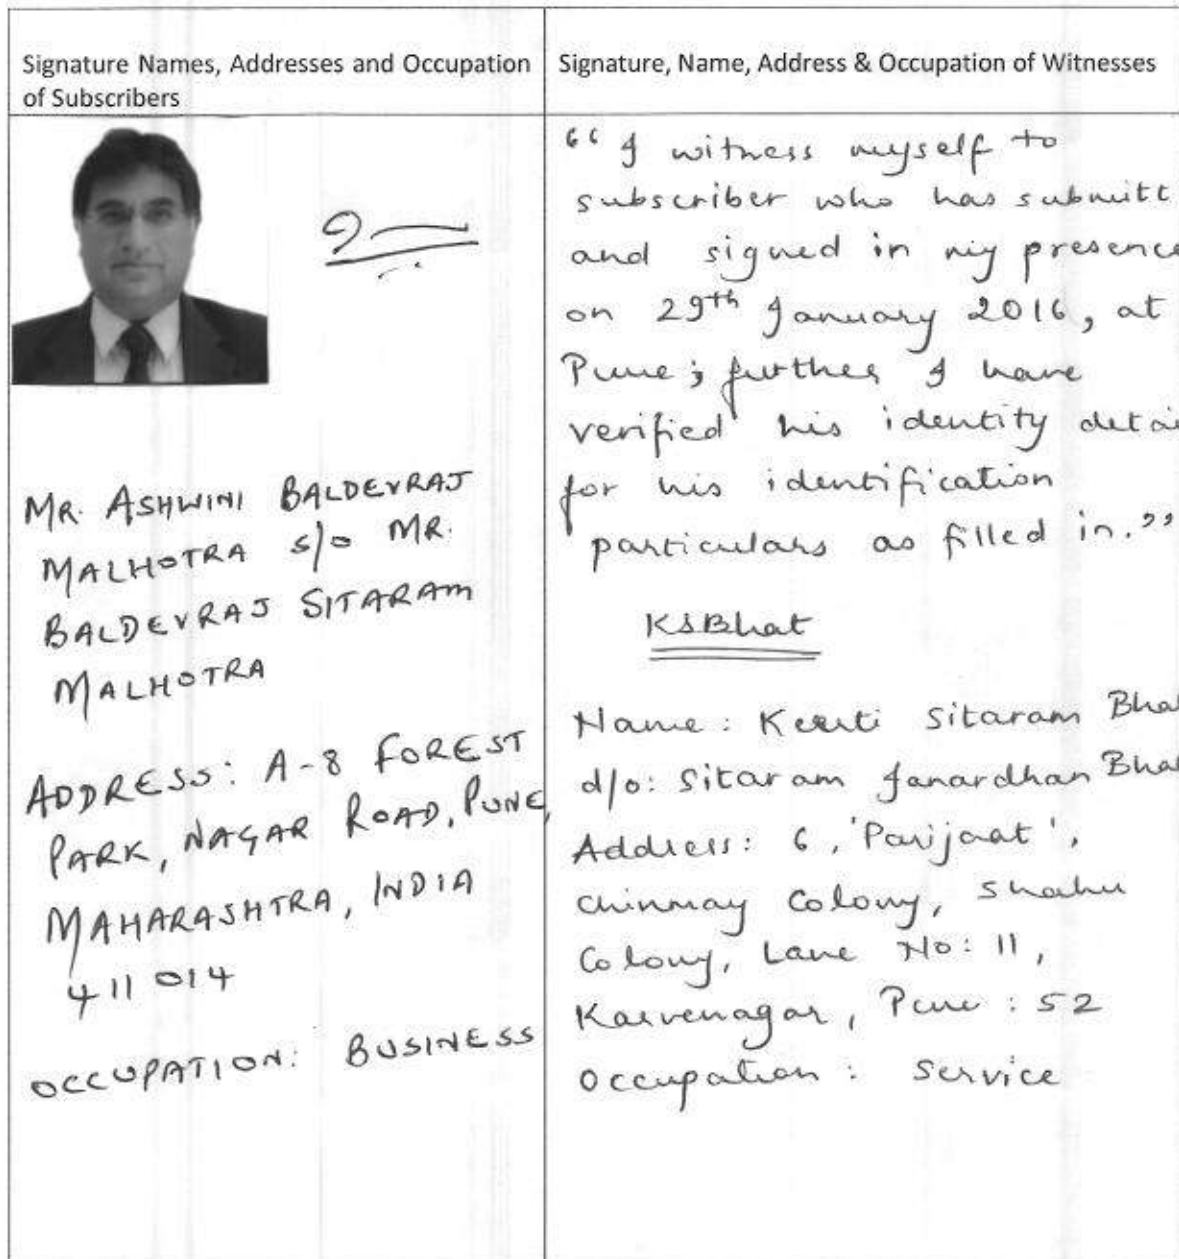 Signature Names, Addresses and Occupation
of Subscribers
Signature, Name, Address & Occupation of Witnesses
MR. ASHWINI BALDEVRAJ
MALHOTRA s/o MR.
BALDEVRAJ SITARAM
MALHOTRA
ADDRESS: A-8 FOREST
PARK, NAGAR ROAD, PUNE,
MAHARASHTRA, INDIA
411 014
OCCUPATION: BUSINESS
“I witness myself to
subscriber who has submitt
and signed in my presence
on 29th January 2016, at
Pune; further I have
verified his identity detai
for his identification
particulars as filled in.”
KSBhat
Name: Keerti Sitaram Bhat
d/o: Sitaram Janardhan Bhat
Address: 6, 'Parijaat',
Chinmay Colony, Shahu
Colony, Lane No: 11,
Karvenagar, Pune: 52
Occupation: Service